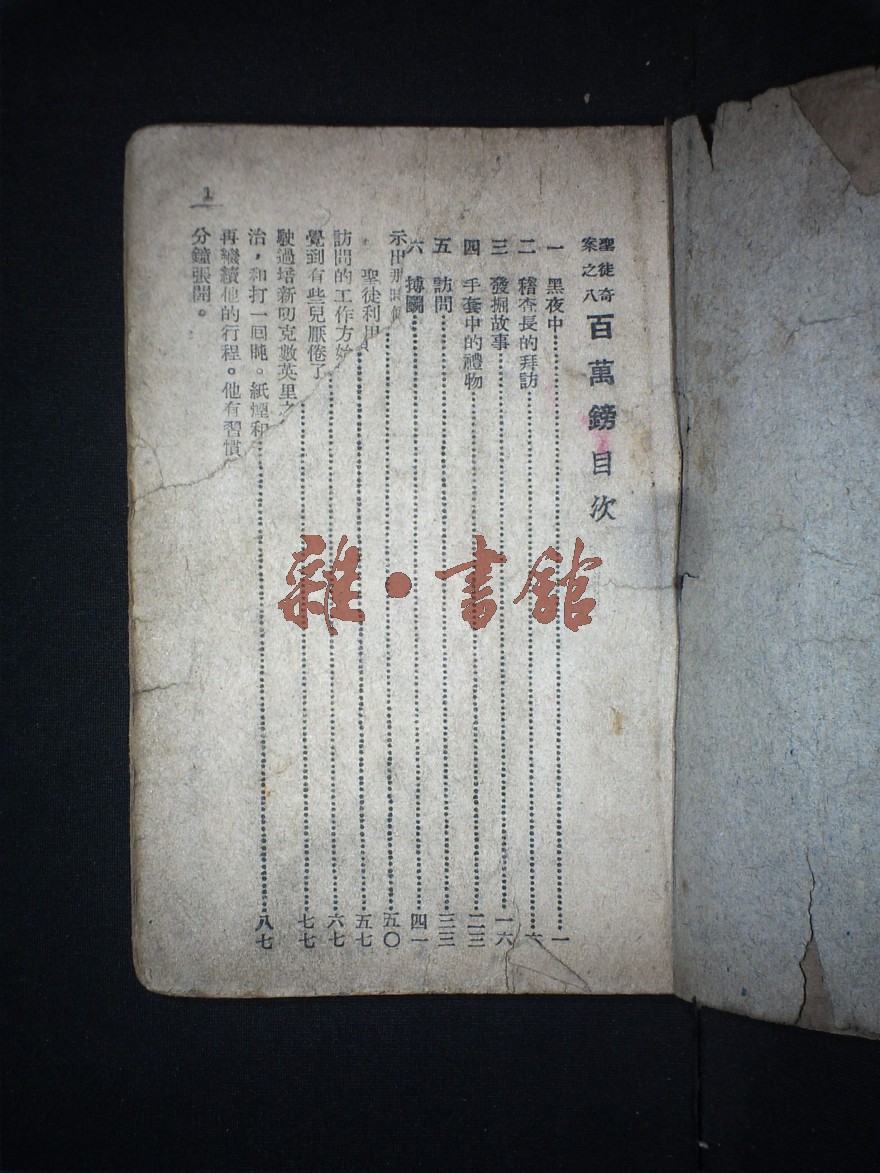 聖徒奇案之八 百萬鎊目次
一 黑夜中 一
二 稽查長的拜訪 六
三 發掘故事 一六
四 手套中的禮物 二三
五 訪問 三三
六 搏鬭 四一
五〇
五七
六七
七七
八七
示出那時候
聖徒利用
訪問的工作方始
覺到有些兒厭倦了
駛過培新叨克數英里之
治,和打一回盹。紙煙和
再繼續他的行程。他有習慣
分鐘張開。
1
雜·書館